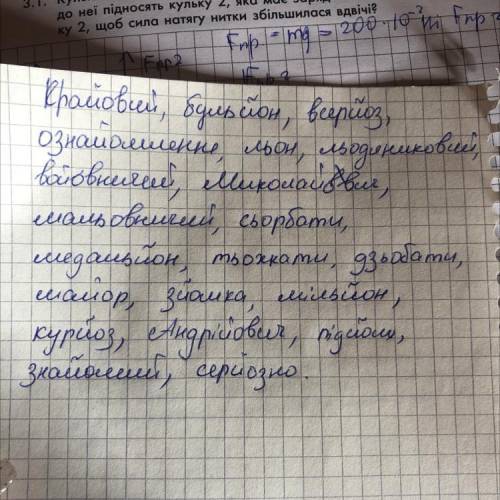 до неї підносять кульку 2, яка має заряд
ку 2, щоб сила натягу нитки збільшилася вдвічі?
Fпр = mg = 200 · 10⁻³
Крайовий, бульйон, всерйоз,
ознайомлення, льон, льодяниковий,
войовничий, Миколайович,
мальовничий, сьорбати,
медальйон, тьохкати, дзьобати,
майор, зйомка, мільйон,
курйоз, Андрійович, підйом,
знайомий, серйозно.